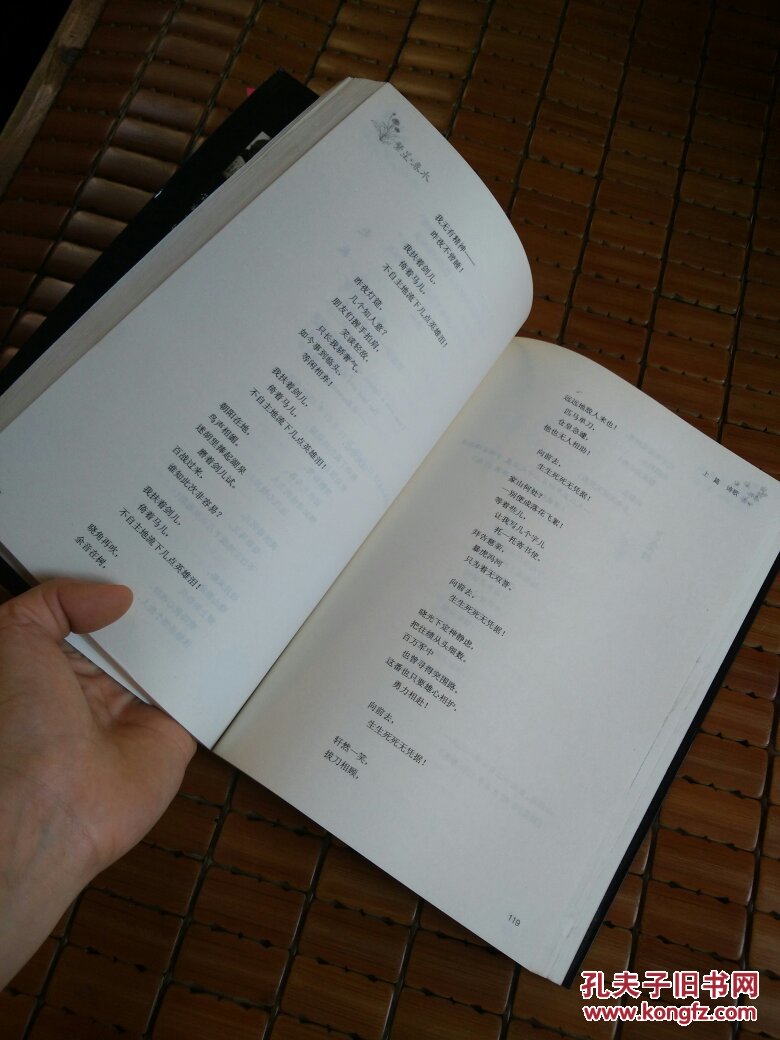 繁星·春水
我无有精神——
昨夜不曾睡！
我扶着剑儿，
倚着马儿，
不自主地流下几点英雄泪！
昨夜灯筵，
几个知人意？
朋友们握手拍肩，
笑谈轻敌，
只长我骄奢气。
如今事到临头，
等闲相弃！
我扶着剑儿，
倚着马儿，
不自主地流下几点英雄泪！
朝阳在地，
鸟声相媚。
迷胡里捧起湖泉
磨着剑儿试。
百战过来，
谁知此次非容易？
我扶着剑儿，
倚着马儿，
不自主地流下几点英雄泪！
晓角再吹，
余音在树，
上篇 诗歌
远远地敌人来也！
匹马单刀，
仓皇急遽，
他也无人相助！
向前去，
生生死死无凭据！
家山何处？
一别便成落花飞絮！
等着些儿，
让我写几个字儿
托一托寄书使。
拜告慈亲，
暴虎冯河
只为着无双誉。
向前去，
生生死死无凭据！
晓光下定神静虑，
把往绩从头细数。
百万军中
也曾寻得突围路。
这番也只要雄心相护，
勇力相赴！
向前去，
生生死死无凭据！
轩然一笑，
拔刀相顾，
119
孔夫子旧书网
www.kongfz.com